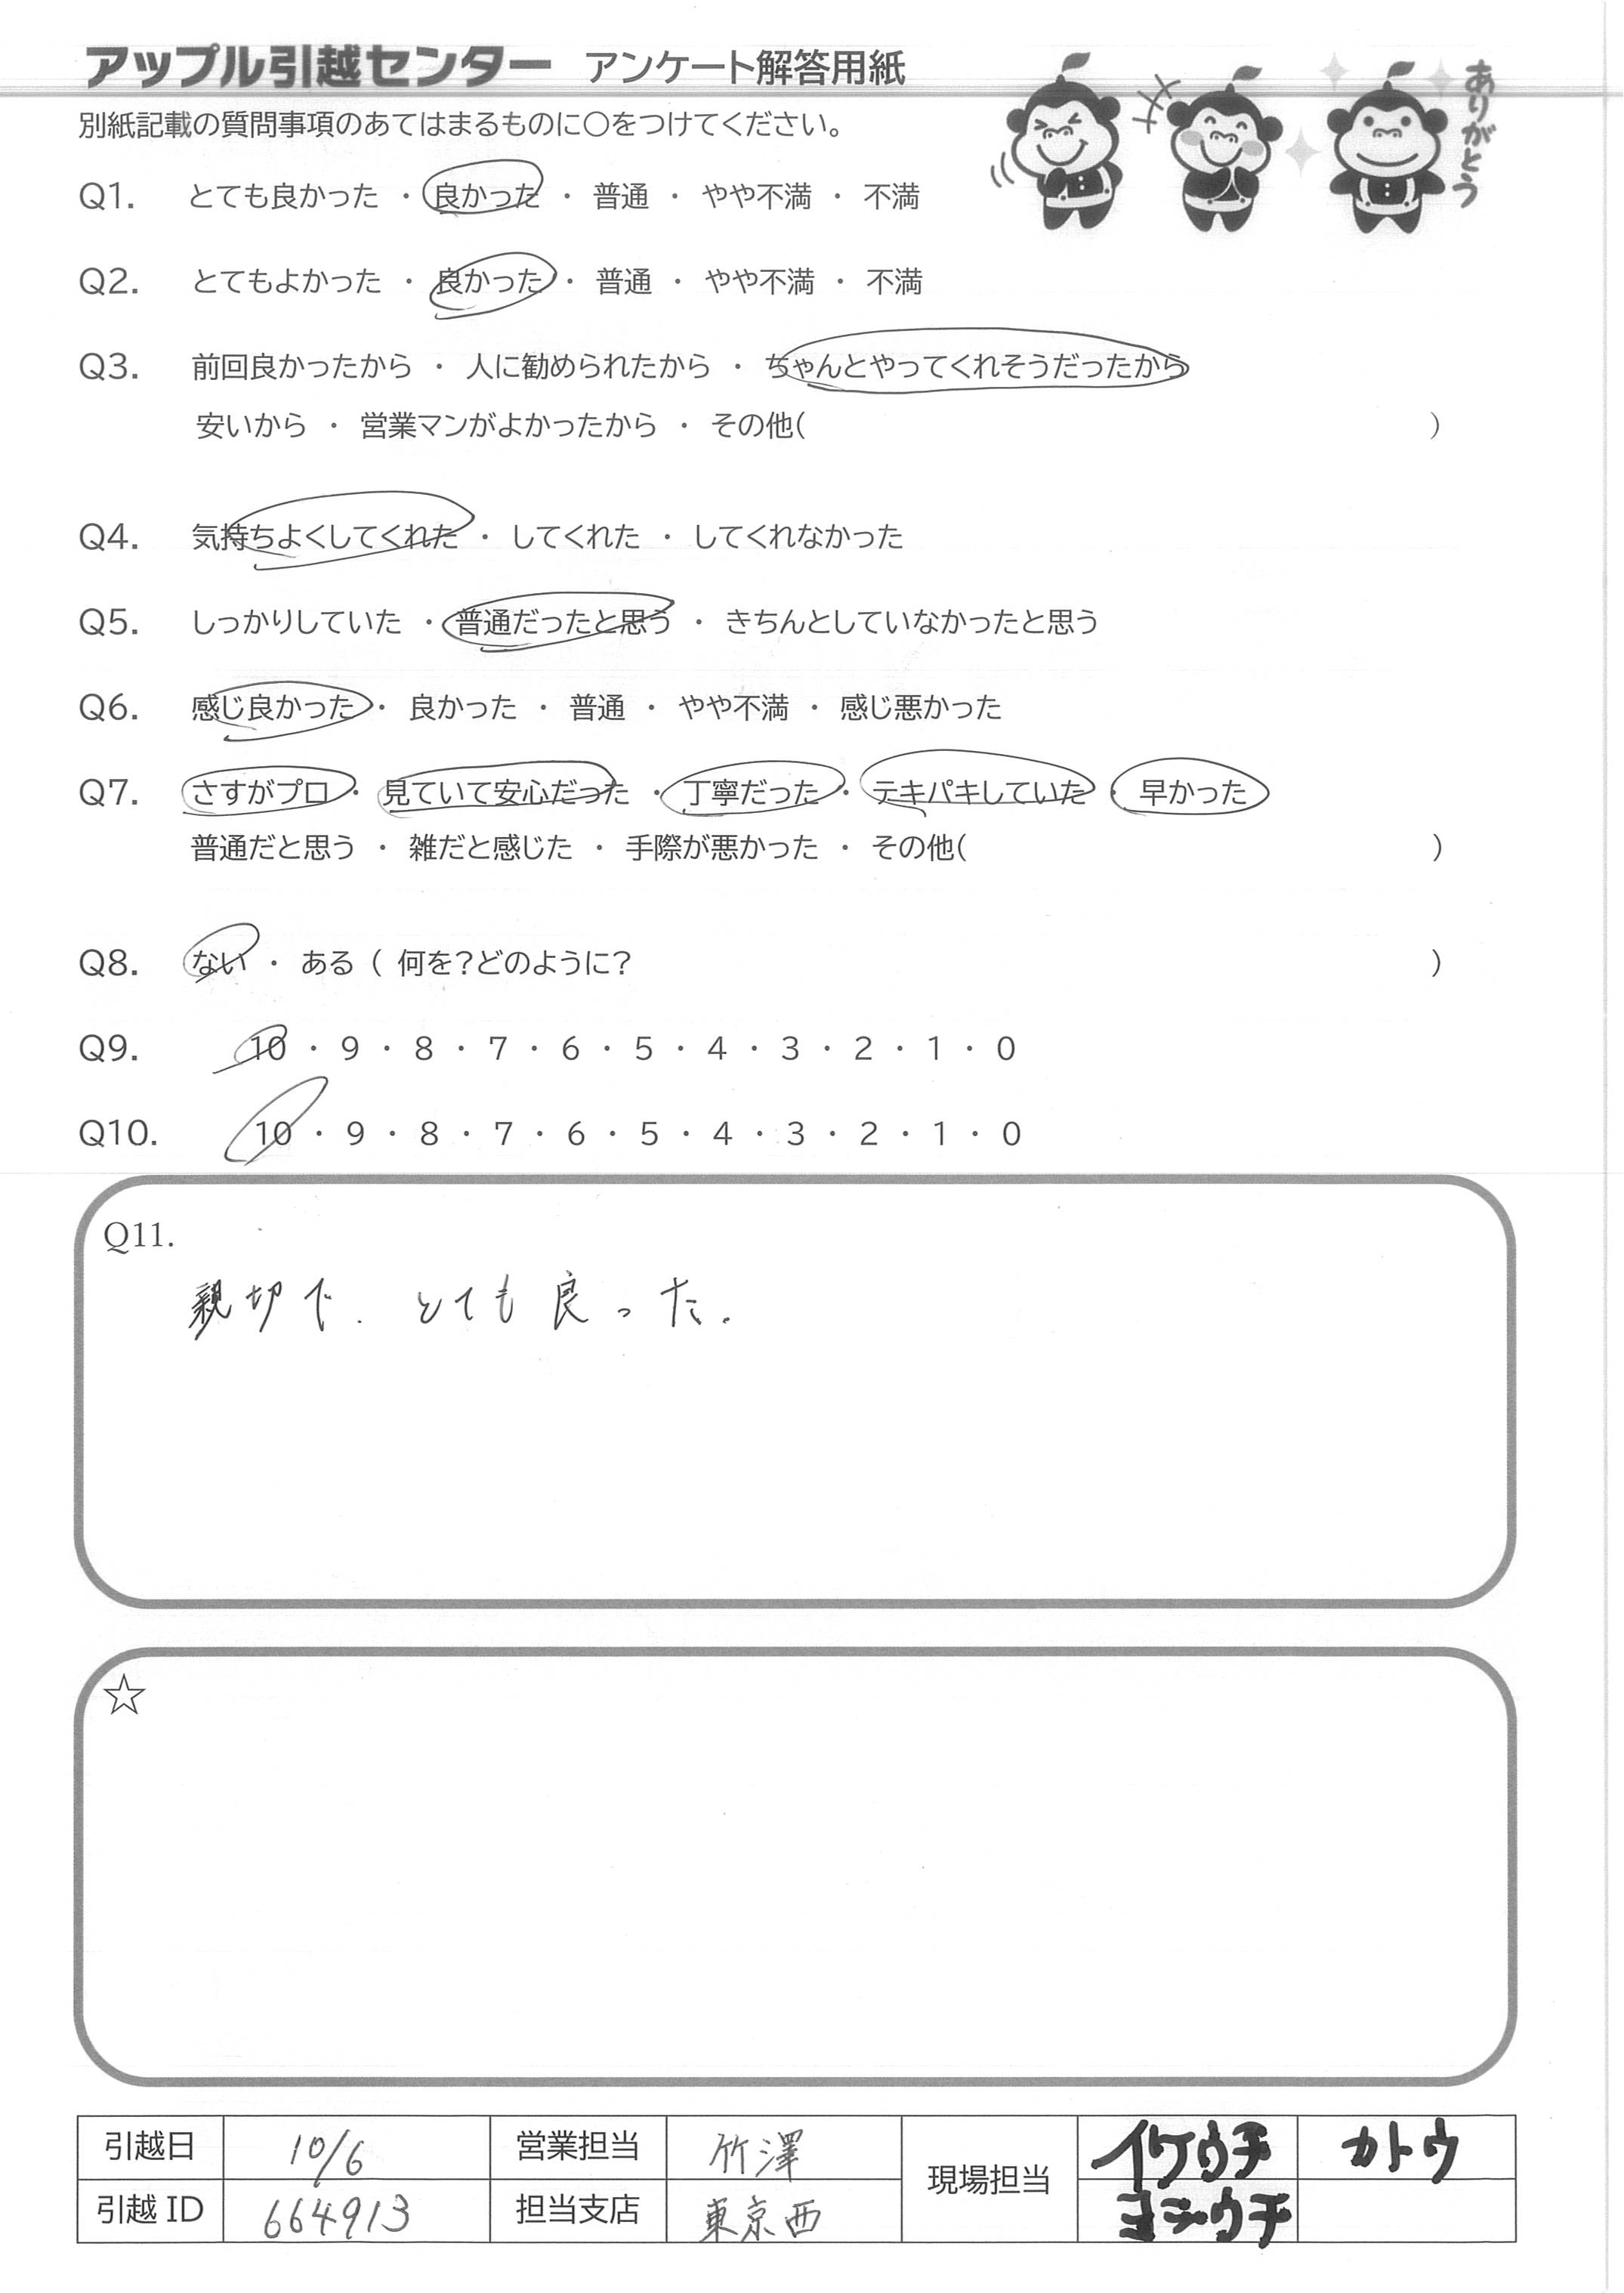 アップル引越センター アンケート解答用紙
別紙記載の質問事項のあてはまるものに〇をつけてください。
ありがとう
Q1. とても良かった ・ 良かった ・ 普通 ・ やや不満 ・ 不満
Q2. とてもよかった ・ 良かった ・ 普通 ・ やや不満 ・ 不満
Q3. 前回良かったから ・ 人に勧められたから ・ ちゃんとやってくれそうだったから
安いから ・ 営業マンがよかったから ・ その他( )
Q4. 気持ちよくしてくれた ・ してくれた ・ してくれなかった
Q5. しっかりしていた ・ 普通だったと思う ・ きちんとしていなかったと思う
Q6. 感じ良かった ・ 良かった ・ 普通 ・ やや不満 ・ 感じ悪かった
Q7. さすがプロ ・ 見ていて安心だった ・ 丁寧だった ・ テキパキしていた ・ 早かった
普通だと思う ・ 雑だと感じた ・ 手際が悪かった ・ その他( )
Q8. ない ・ ある ( 何を?どのように? )
Q9. 10 ・ 9 ・ 8 ・ 7 ・ 6 ・ 5 ・ 4 ・ 3 ・ 2 ・ 1 ・ 0
Q10. 10 ・ 9 ・ 8 ・ 7 ・ 6 ・ 5 ・ 4 ・ 3 ・ 2 ・ 1 ・ 0
Q11.
親切で、とても良った。
☆
引越日 10/6 営業担当 竹澤 現場担当 イケウチ カトウ
引越 ID 664913 担当支店 東京西 ヨシウチ